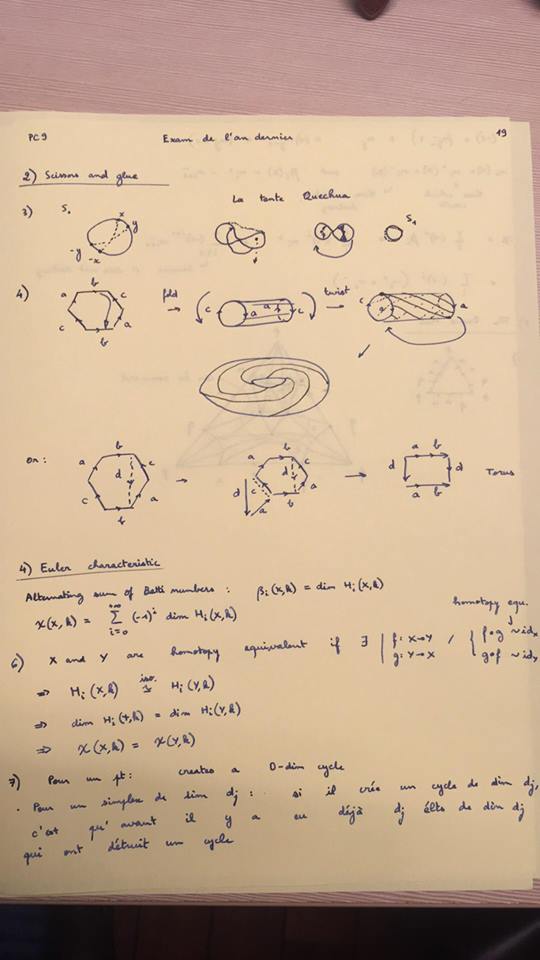 PC9 Exam de l'an dernier 19
2) Scissors and glue
La tente Quechua
3) S₁ x y -y -x S₁
4) a b c c b a fold c a b c twist c a a
or: a b c d c b a a b c d d c b a a a b d d a b Torus
4) Euler characteristic
Alternating sum of Betti numbers : βi(X,k) = dim Hi(X,k)
χ(X,k) = Σ (-1)^i dim Hi(X,k)
i=0
+∞
homotopy equ.
6) X and Y are homotopy equivalent if ∃ | f: X→Y g: Y→X / { f∘g ~ idx g∘f ~ idx
⇒ Hi(X,k) ≅ Hi(Y,k)
iso.
⇒ dim Hi(X,k) = dim Hi(Y,k)
⇒ χ(X,k) = χ(Y,k)
7) Pour un pt: creates a 0-dim cycle
· Pour un simplexe de dim dj : si il crée un cycle de dim dj,
c'est qu'avant il y a eu déjà dj élts de dim dj
qui ont détruit un cycle